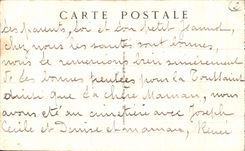 CARTE POSTALE
tes parents, toi et ton petit Jeannot,
chez nous les santés sont bonnes,
nous te remercions bien sincèrement
de tes bonnes pensées pour la Toussaint
ainsi que la chère Maman, nous
avons été au cimetière avec Joseph
Cécile et Denise et maman, René